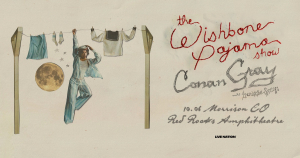 the
Wishbone
Pajama
show
Conan Gray
Morrison CO
Red Rocks Amphitheatre
LIVE NATION